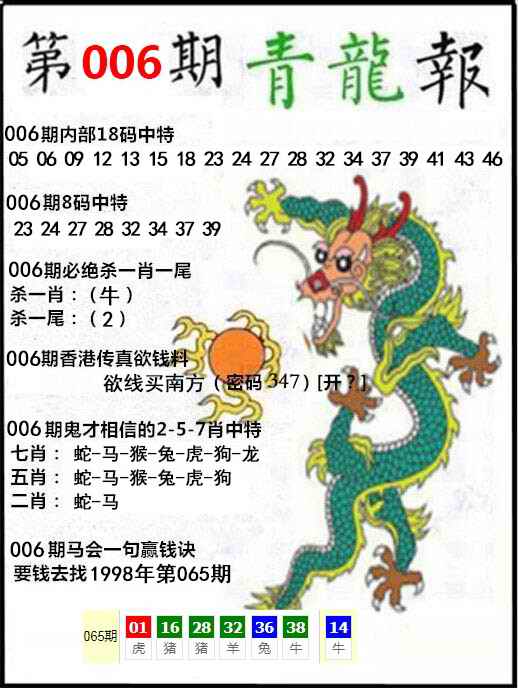 第006期青龍報
006期内部18码中特
05 06 09 12 13 15 18 23 24 27 28 32 34 37 39 41 43 46
006期8码中特
23 24 27 28 32 34 37 39
006期必绝杀一肖一尾
杀一肖：（牛）
杀一尾：（2）
006期香港传真欲钱料
欲线买南方（密码347）[开？]
006期鬼才相信的2-5-7肖中特
七肖： 蛇-马-猴-兔-虎-狗-龙
五肖： 蛇-马-猴-兔-虎-狗
二肖： 蛇-马
006期马会一句赢钱诀
要钱去找1998年第065期
065期 01 16 28 32 36 38 14
虎 猪 猪 羊 兔 牛 牛